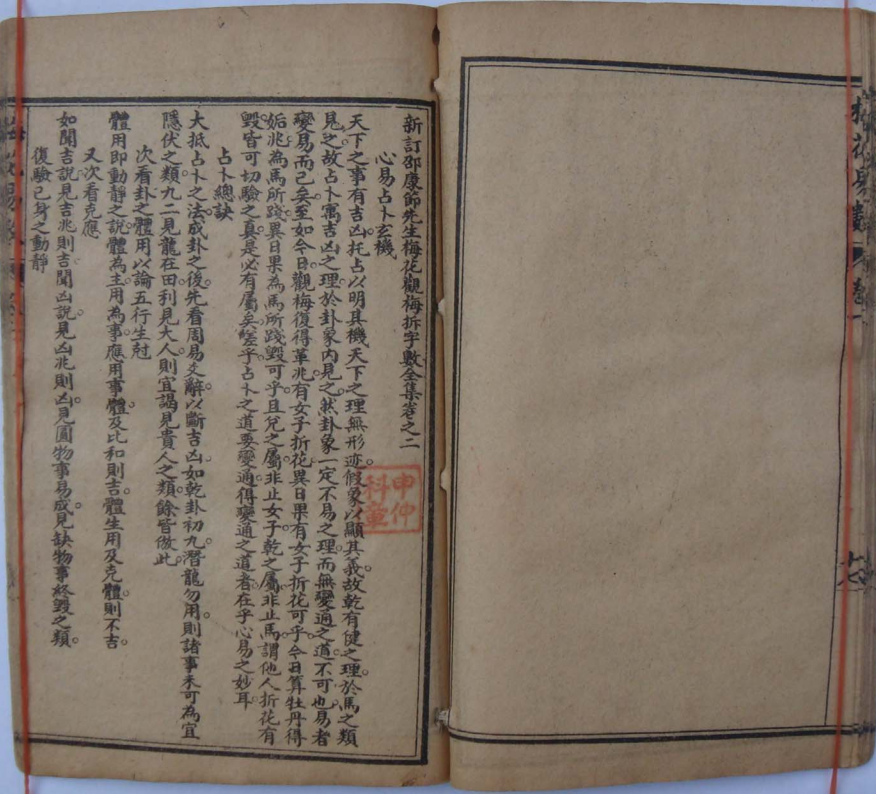 新訂邵康節先生梅花觀梅拆字數全集卷之二
心易占卜玄機
天下之事有吉凶托占以明其機天下之理無形迹假象以顯其義故乾有健之理於馬之類
見之故占卜寓吉凶之理於卦象內見之然卦象一定不易之理而無變通之道不可也易者
變易而已矣至如今日觀梅復得革兆有女子折花異日果有女子折花可乎今日算牡丹得
姤兆為馬所踐異日果為馬所踐毀可乎且兌之屬非止女子乾之屬非止馬謂他人折花有
毀皆可切驗之真是必有屬矣嗟乎占卜之道要變通得變通之道者在乎心易之妙耳
占卜總訣
大抵占卜之法成卦之後先看周易爻辭以斷吉凶如乾卦初九潛龍勿用則諸事未可為宜
隱伏之類九二見龍在田利見大人則宜謁見貴人之類餘皆倣此
次看卦之體用以論五行生尅
體用即動靜之說體為主用為事應用事體及比和則吉體生用及克體則不吉
又次看克應
如聞吉說見吉兆則吉聞凶說見凶兆則凶見圓物事易成見缺物事終毀之類
復驗已身之動靜
申仲
科章